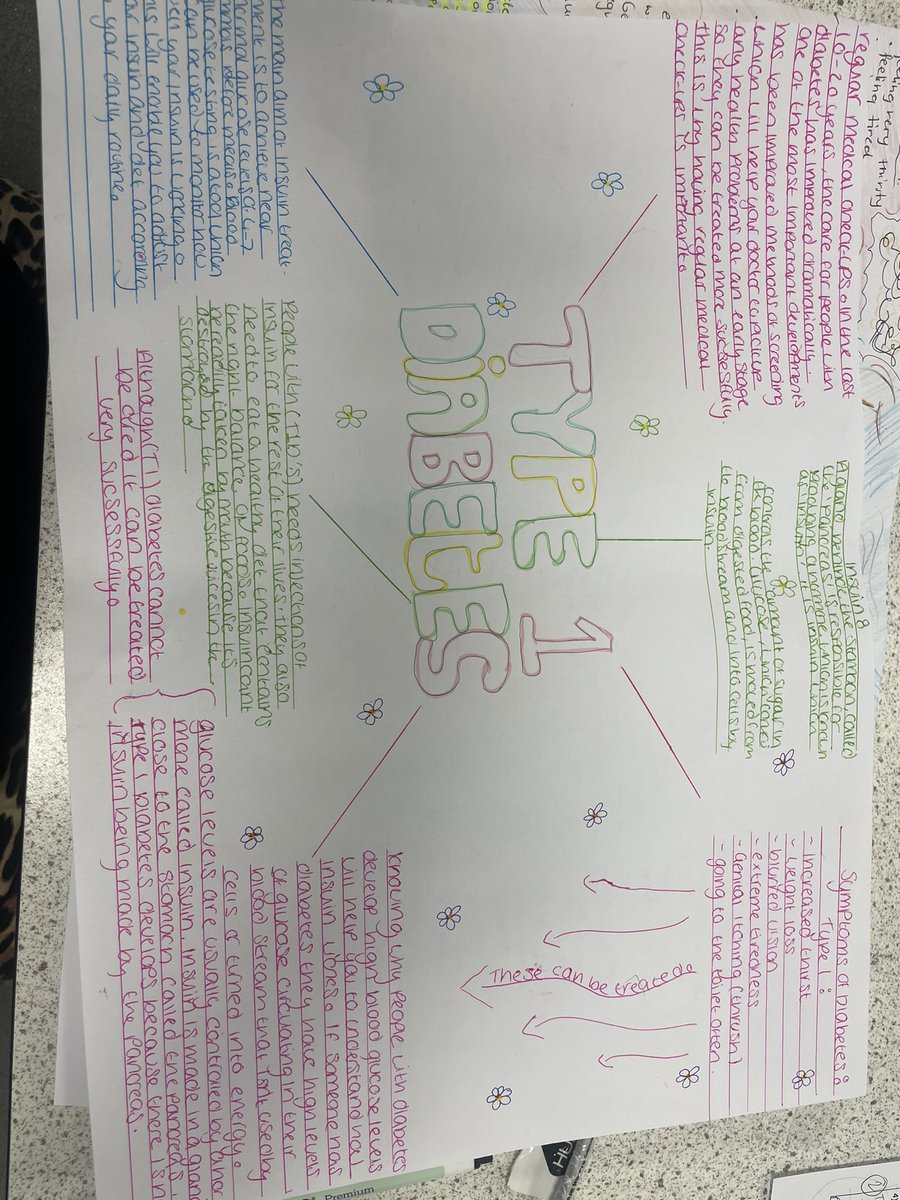 feeling very thirsty
feeling tired
regular medical check-ups. in the last
10-20 years, the care for people with
diabetes has improved dramatically.
one of the most important develpments
has been improved methods of screening
which will help your doctor to pick up
any health problems at an early stage
so they can be treated more sucsessfully.
this is why having regular medical
check-ups is important.
Insulin:
A gland behind the stomach, called
the 'pancreas' is responsible for
producing a hormone which is known
as insulin. it is insulin which
controls the amount of sugar in
the blood. Glucose obtained
from digested food is moved from
the bloodstream and into cells by
insulin.
Symptoms of diabetes:
Type 1:
- increased thirst
- weight loss
- blurred vision
- extreme tiredness
- Genital itching (thrush)
- going to the toilet often.
These can be treated.
TYPE 1
DIABETES
The main aim of insulin treat-
ment is to achieve near
normal glucose levels (4-7
mmols) before meals. Blood
glucose testing is a tool which
can be used to monitor how
well your insulin is working.
this will enable you to adjust
your insulin and diet according
to your daily routine.
People with (T1D's) needs injections of
insulin for the rest of their lives. they also
need to eat a healthy diet that contains
the right balance of foods. Insulin cant
be readily taken by mouth because its
destroyed by the digestive juices in the
stomach.
Although (T1) diabetes cannot
be cured it can be treated
very sucsessfully.
knowing why people with diabetes
develop high blood glucose levels
will help you to understand how
insulin works. If someone has
diabetes they have high levels
of glucose circulating in their
blood stream that isnt used by
cells or turned into energy.
glucose levels are usually controlled by a hor
mone called insulin. Insulin is made in a gland
close to the stomach called the pancreas.
type 1 diabetes develops because there isn
insulin being made by the pancreas.
Premium